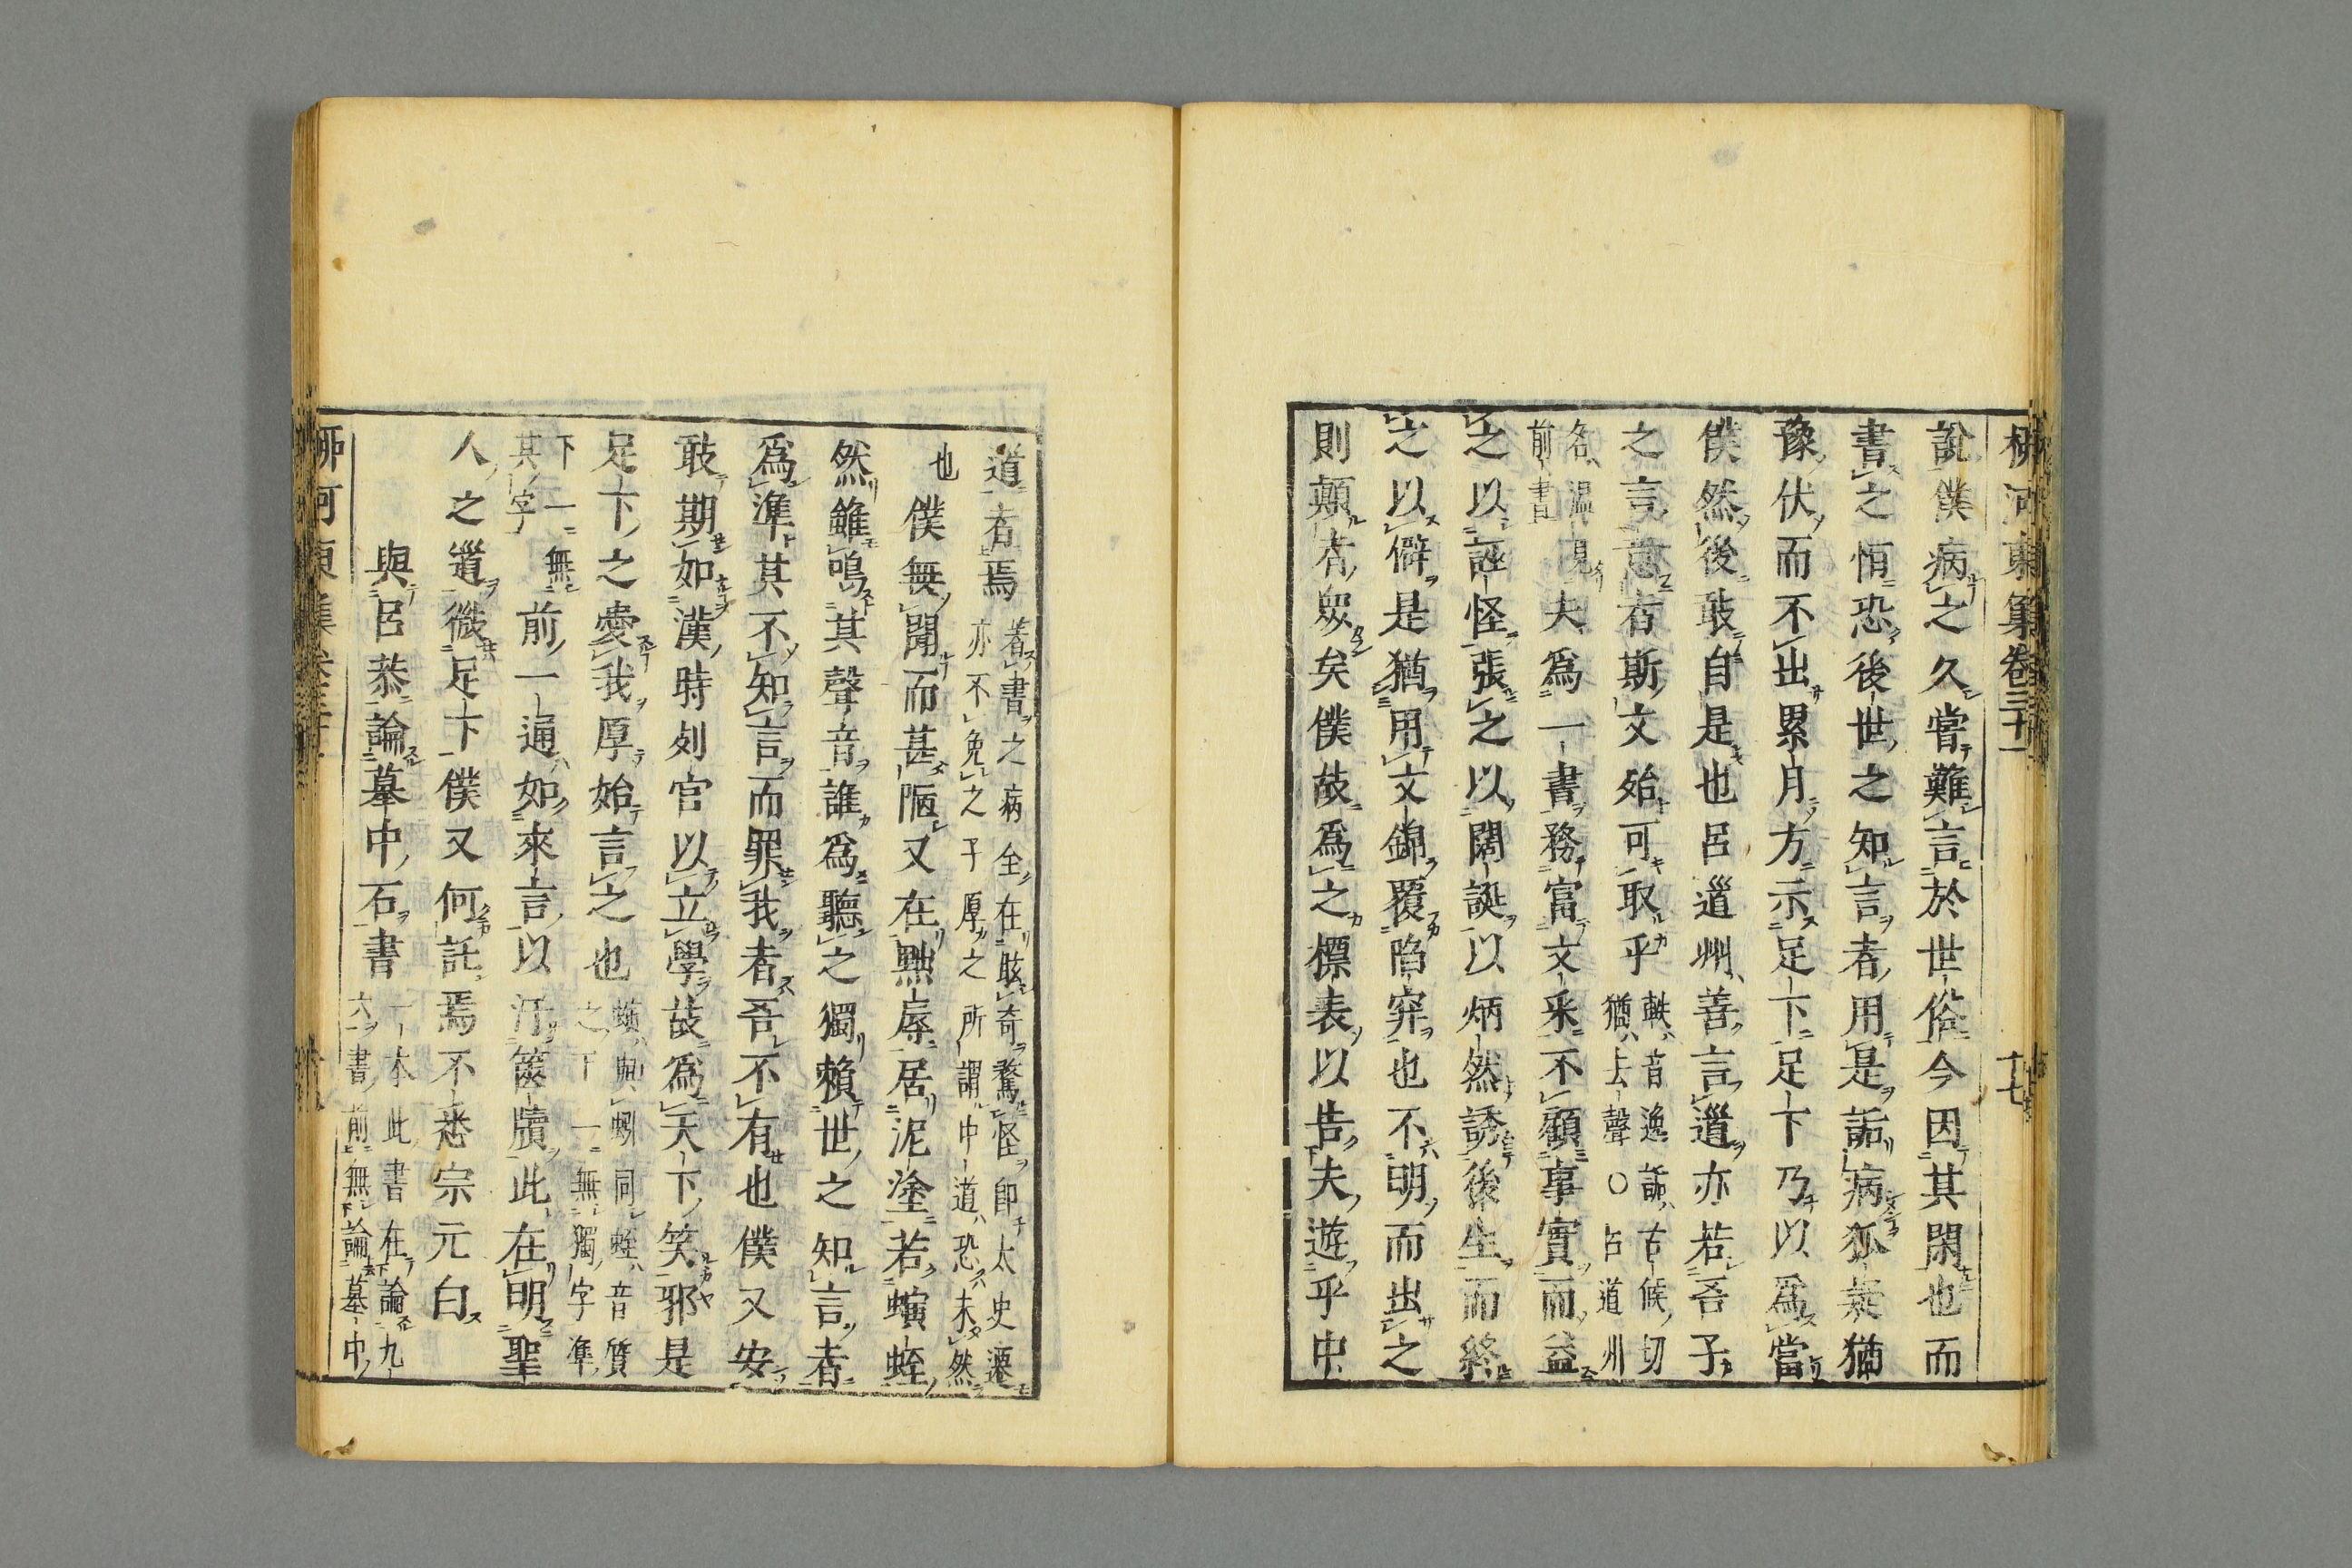 柳河東集卷三十一
十七
說僕病之久嘗難言於世俗今因其閑也而
書之恒恐後世之知言者用是詬病狐疑猶
豫伏而不出累月方示足下足下乃以爲當
僕然後敢自是也呂道州善言道亦若吾子
之言意者斯文殆可取乎
軼音逸詬古候切
猶去聲〇呂道州
名溫見
前書
夫爲一書務富文采不顧事實而益
之以誣怪張之以闊誕以炳然誘後生而終
之以僻是猶用文錦覆陷穽也不明而出之
則顛者衆矣僕故爲之標表以告夫遊乎中
道者焉
著書之病全在眩奇騖怪卽太史遷
亦不免之子厚之所謂中道恐未然
也
僕無聞而甚陋又在黜辱居泥塗若螾蛭
然雖鳴其聲音誰爲聽之獨賴世之知言者
爲準其不知言而罪我者吾不有也僕又安
敢期如漢時列官以立學故爲天下笑邪是
足下之愛我厚始言之也
螾與蚓同蛭音質
之下一無獨字準
下一無
其字
前一通如來言以汙篋牘此在明聖
人之道微足下僕又何託焉不悉宗元白
與呂恭論墓中石書
一本此書在論九
六書前無論墓中